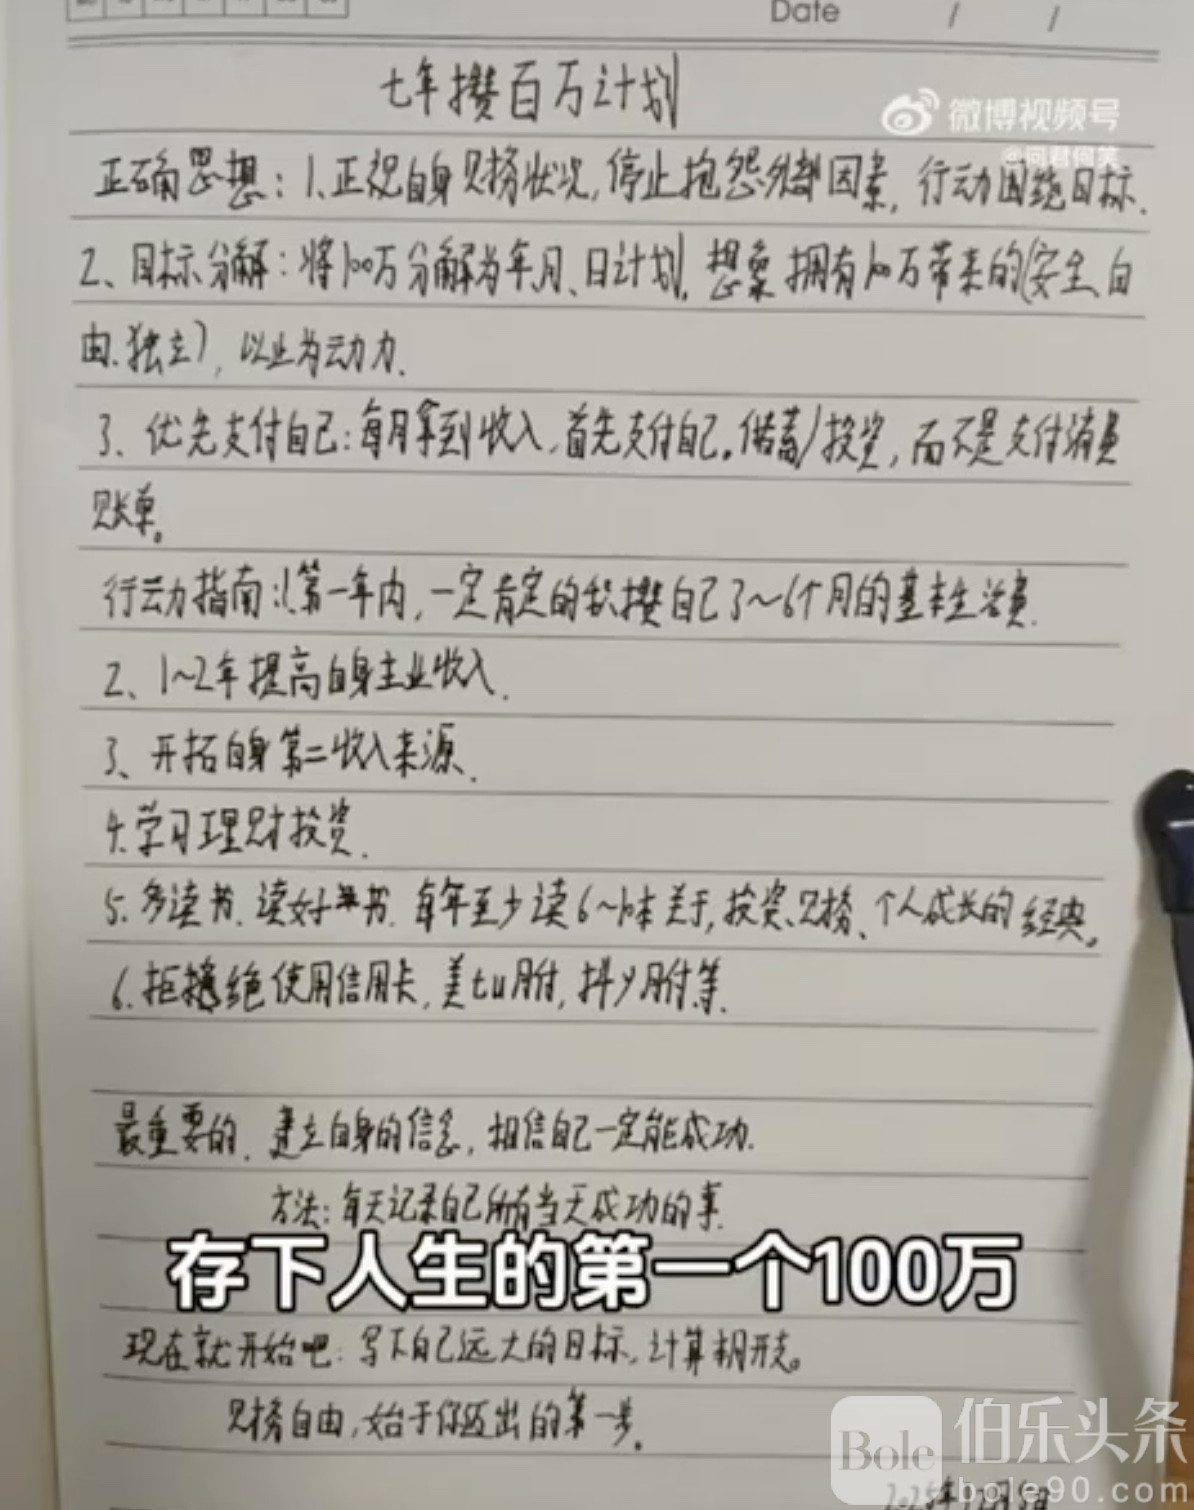 Date / /
七年攒百万计划
微博视频号
@何君何笑
正确思想：1.正视自身财务状况，停止抱怨外部因素，行动围绕目标.
2、目标分解：将100万分解为年、月、日计划，想象拥有100万带来的(安全、自
由.独立)，以此为动力.
3、优先支付自己：每月拿到收入，首先支付自己。储蓄/投资，而不是支付消费
账单。
行动力指南：1.第一年内，一定肯定的积攒自己3～6个月的基本生活费.
2、1～2年提高自身主业收入.
3、开拓自身第二收入来源.
4.学习理财投资.
5.多读书.读好书.每年至少读6～10本关于，投资、财务、个人成长的经典。
6.拒绝使用信用卡，美tu月付，抖y月付等.
最重要的.建立自身的信念，相信自己一定能成功.
方法：每天记录自己所有当天成功的事.
存下人生的第一个100万
现在就开始吧：写下自己远大的目标，计算期开支。
财务自由，始于你迈出的第一步。
Bole 伯乐头条
bole90.com